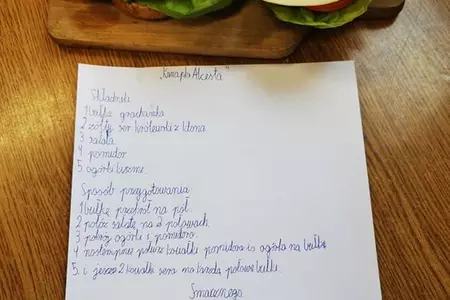 "Kanapka Alcesta"
Składniki
1 bułka grahamka
2 żółty ser królewski z
3 sałata
4 pomidor
5 ogórki
Sposób przygotowania
1 bułkę na pół.
2 położ sałatę na 2 połowach.
3 pokroj ogórki i pomidora.
4 następnie połóż kawałki pomidora i ogórka na bułkę
5. i jeszcze 2 kawałki sera na każdą połowę bułki.
Smacznego